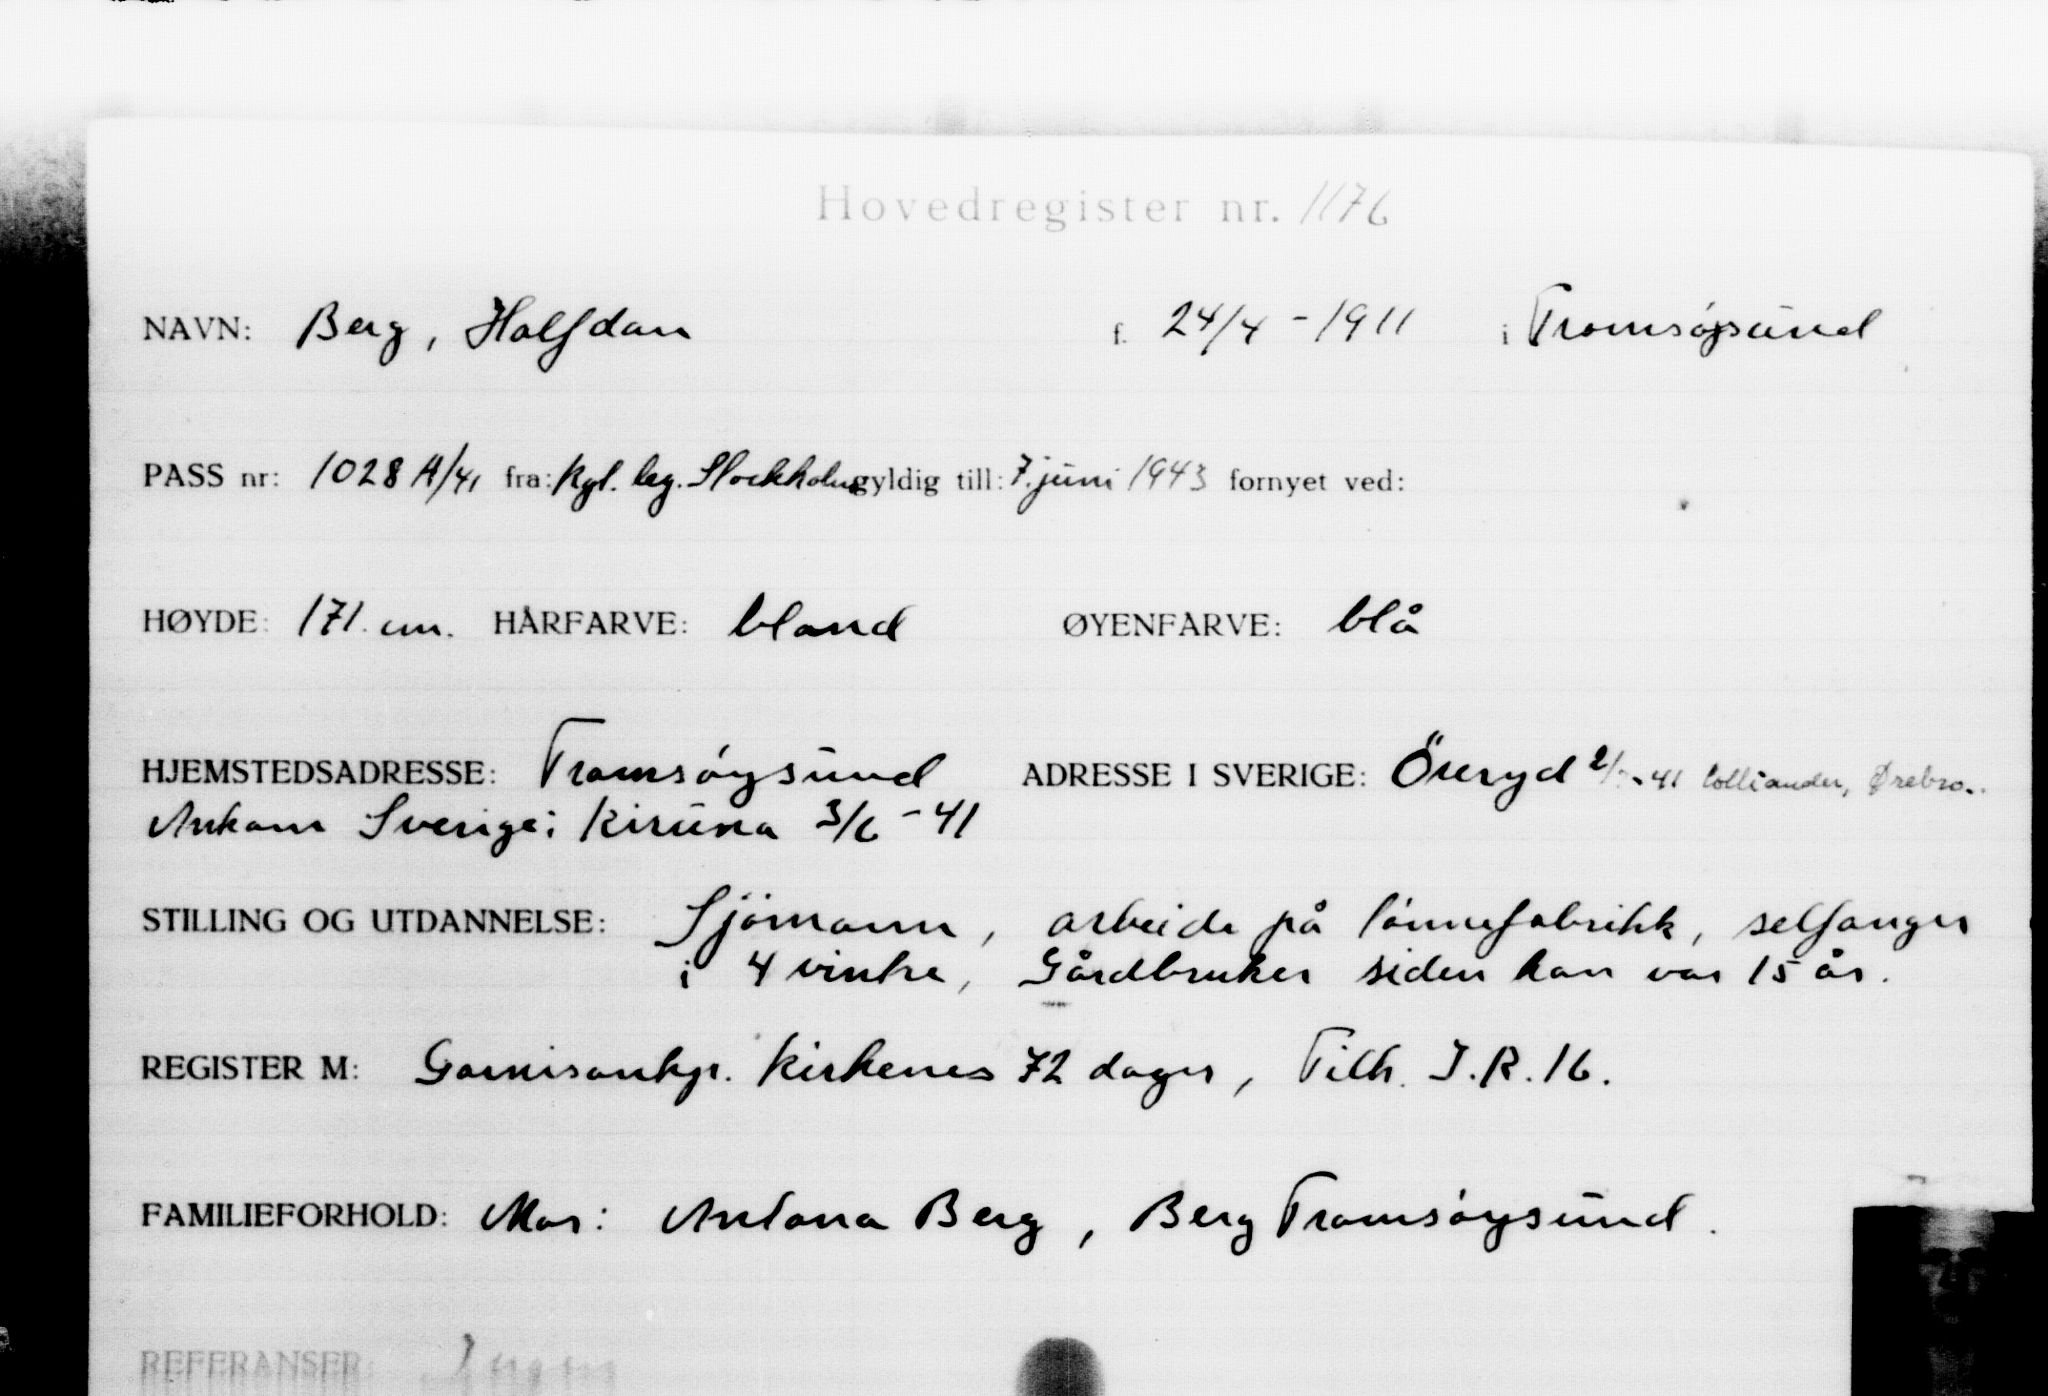 Hovedregister nr. 1176
NAVN: Berg, Halfdan f. 24/4 - 1911 i Tromsøysund
PASS nr: 1028 A/41 fra: Kgl. leg. Stockholm gyldig till: 7. juni 1943 fornyet ved:
HØYDE: 171 cm. HÅRFARVE: blond ØYENFARVE: blå
HJEMSTEDSADRESSE: Tromsöysund ADRESSE I SVERIGE: Öreryd -41 Colliander, Ørebro.
Ankom Sverige: Kiruna 3/6 - 41
STILLING OG UTDANNELSE: Sjömann, arbeide på tönnefabrikk, selfanger
i 4 vintre, Gårdbruker siden han var 15 år.
REGISTER M: Garnisonkp. Kirkenes 72 dager, Tilh. I.R. 16.
FAMILIEFORHOLD: Mor: Antona Berg, Berg Tromsöysund.
REFERANSER: Ingen